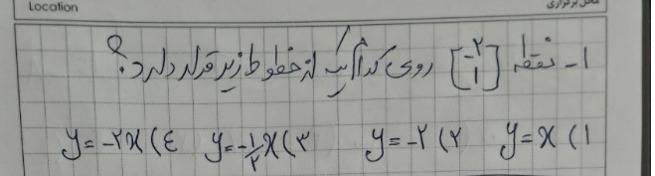 Location
محل برگزاری
۱- نقطه [-۲ ۱] روی کدام یک از خطوط زیر قرار دارد؟
۱) y = x ۲) y = -۲ ۳) y = -۱/۲ x ۴) y = -۲x